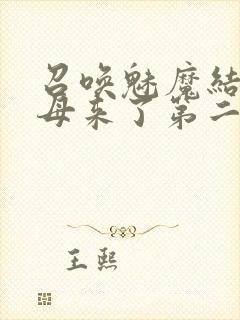 召唤魅魔結
母来了第二
王熙